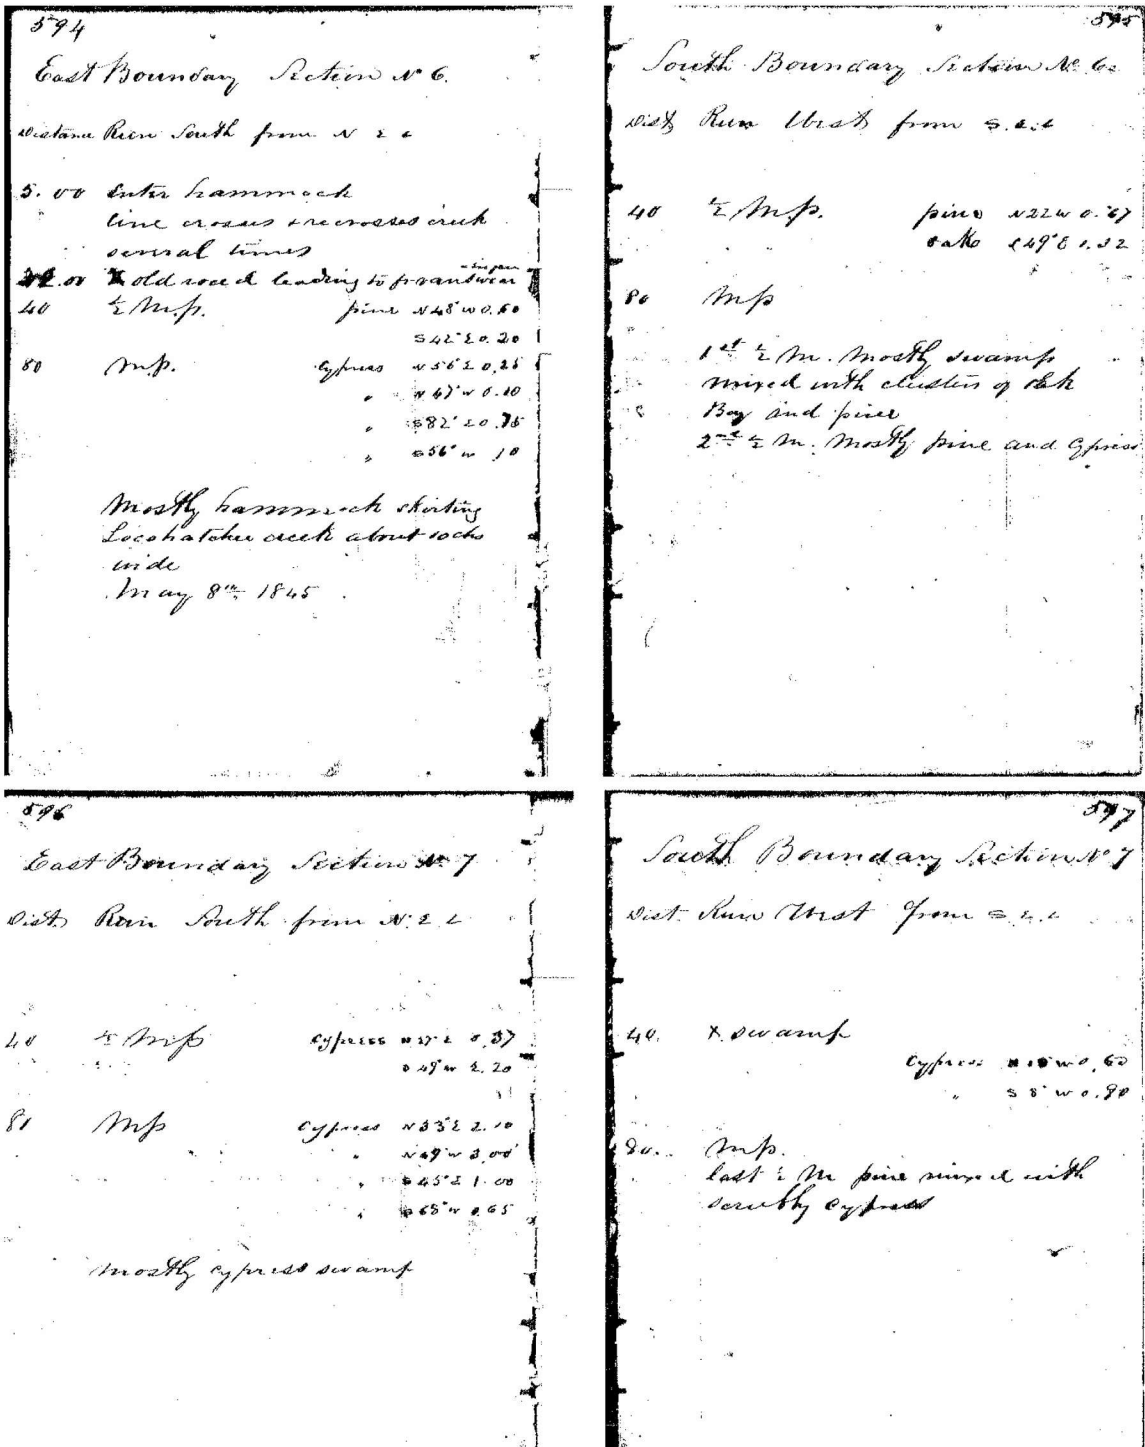 594
East Boundary Section No 6.
Distance Run South from N E C
5.00 Enter hammock
line crosses & recrosses creek
several times
.00 X old road leading to
40 ½ M.P. pine N48°W 0.60
S42°E 0.20
80 M.P. Cypress N56°E 0.25
" N47°W 0.10
" S82°E 0.75
" S56°W 10
Mostly hammock skirting
Locohatchee creek about 10chs
wide
May 8th 1845
595
South Boundary Section No 6
Dist Run West from S.E.C
40 ½ M.P. pine N22W 0.67
oak 49°E 1.32
80 MP
1st ½ M. Mostly swamp
mixed with clusters of oak
Bay and pine
2nd ½ M. Mostly pine and Cypress
596
East Boundary Section No 7
Dist. Run South from N.E.C
40 ½ MP Cypress E 0.37
49°W 2.20
80 MP Cypress N33°E 2.10
" N49°W 3.00
" S45°E 1.00
" S65°W 0.65
Mostly cypress swamp
597
South Boundary Section No 7
Dist. Run West from S.E.C
40. X swamp
Cypress W 0.60
" S 5°W 0.90
80. MP.
last ½ M pine mixed with
scrubby cypress